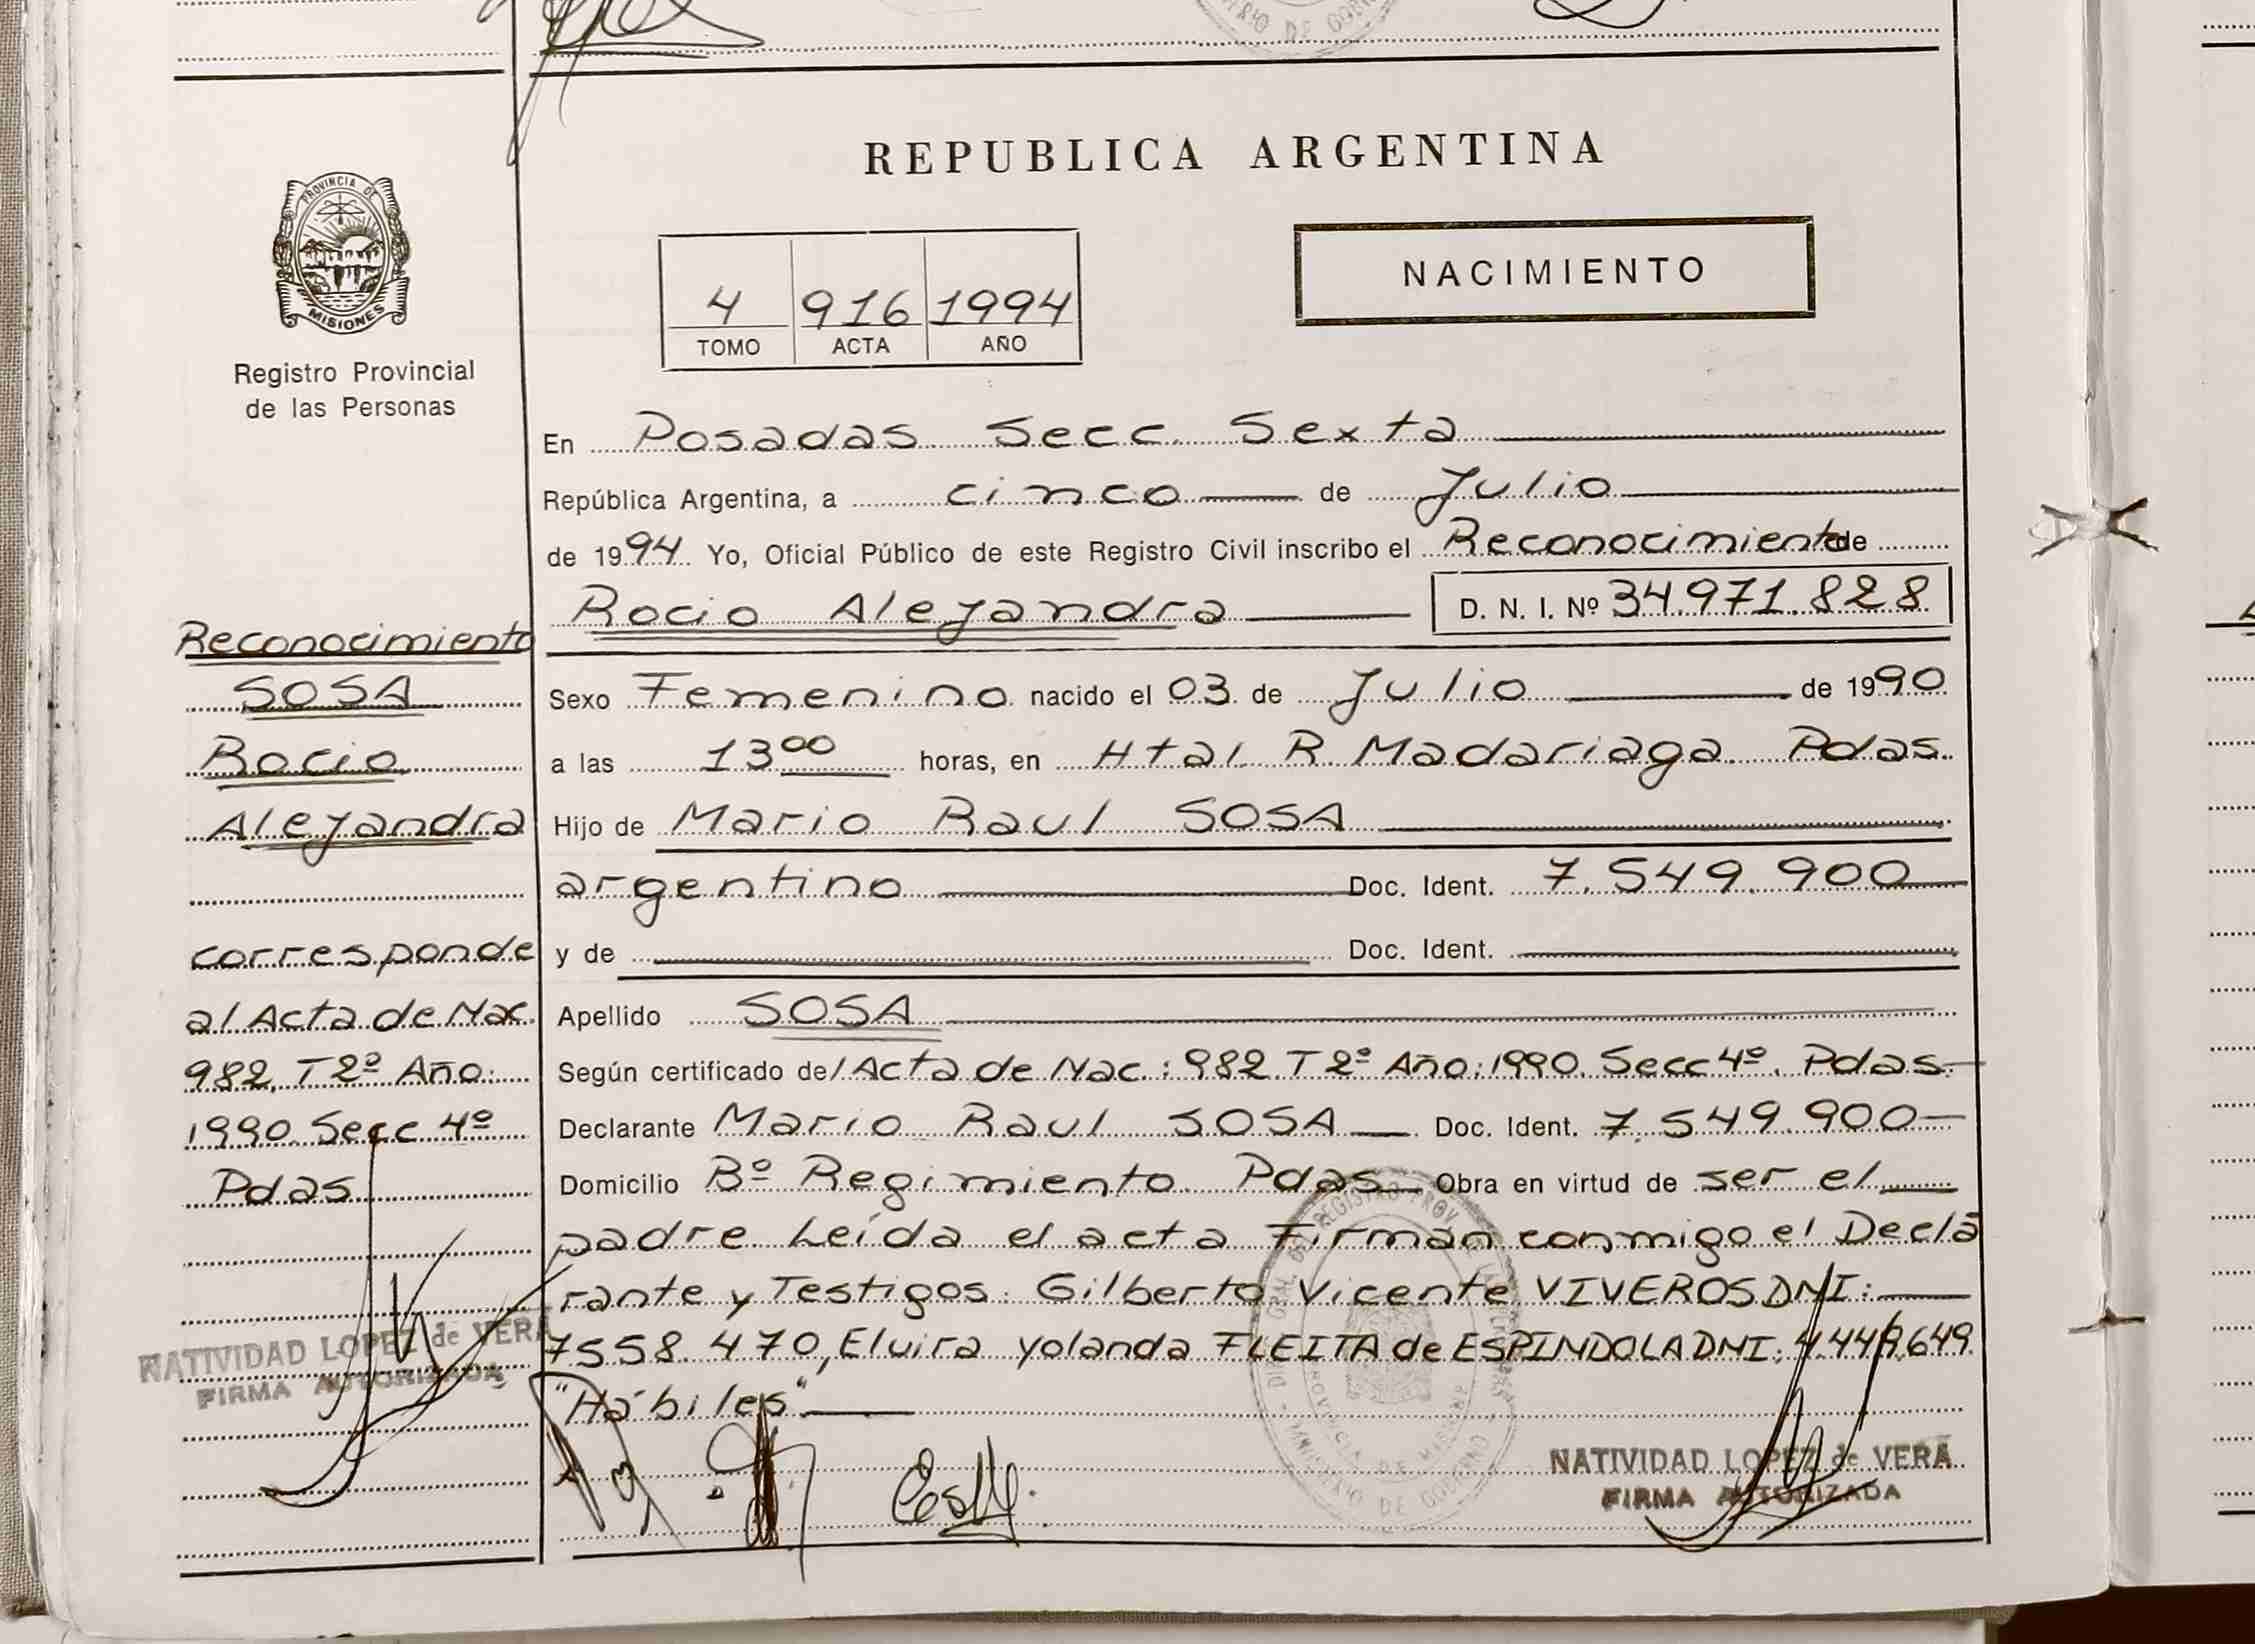 REPUBLICA ARGENTINA
PROVINCIA DE
MISIONES
Registro Provincial
de las Personas
4 916 1994
TOMO ACTA AÑO
NACIMIENTO
En Posadas Secc. Sexta
República Argentina, a cinco de Julio
de 1994 Yo, Oficial Público de este Registro Civil inscribo el Reconocimiento de
Rocio Alejandra D. N. I. Nº 34.971.828
Sexo Femenino nacido el 03 de Julio de 1990
a las 13 00 horas, en Htal R. Madariaga. Pdas.
Hijo de Mario Raul SOSA
argentino Doc. Ident. 7.549.900
y de Doc. Ident.
Apellido SOSA
Según certificado del Acta de Nac.: 982 T 2º Año: 1990. Secc 4º. Pdas.
Declarante Mario Raul SOSA Doc. Ident. 7.549.900
Domicilio Bº Regimiento Pdas Obra en virtud de ser el
padre Leída el acta Firman conmigo el Decla
rante y Testigos: Gilberto Vicente VIVEROS DNI:
7558.470, Elvira Yolanda FLEITA de ESPINDOLA DNI:
"Hábiles"
NATIVIDAD LOPEZ de VERA
FIRMA AUTORIZADA
Reconocimiento
SOSA
Rocio
Alejandra
corresponde
al Acta de Nac.
982, T 2º Año:
1990. Secc 4º
Pdas
NATIVIDAD LOPEZ de VERA
FIRMA AUTORIZADA